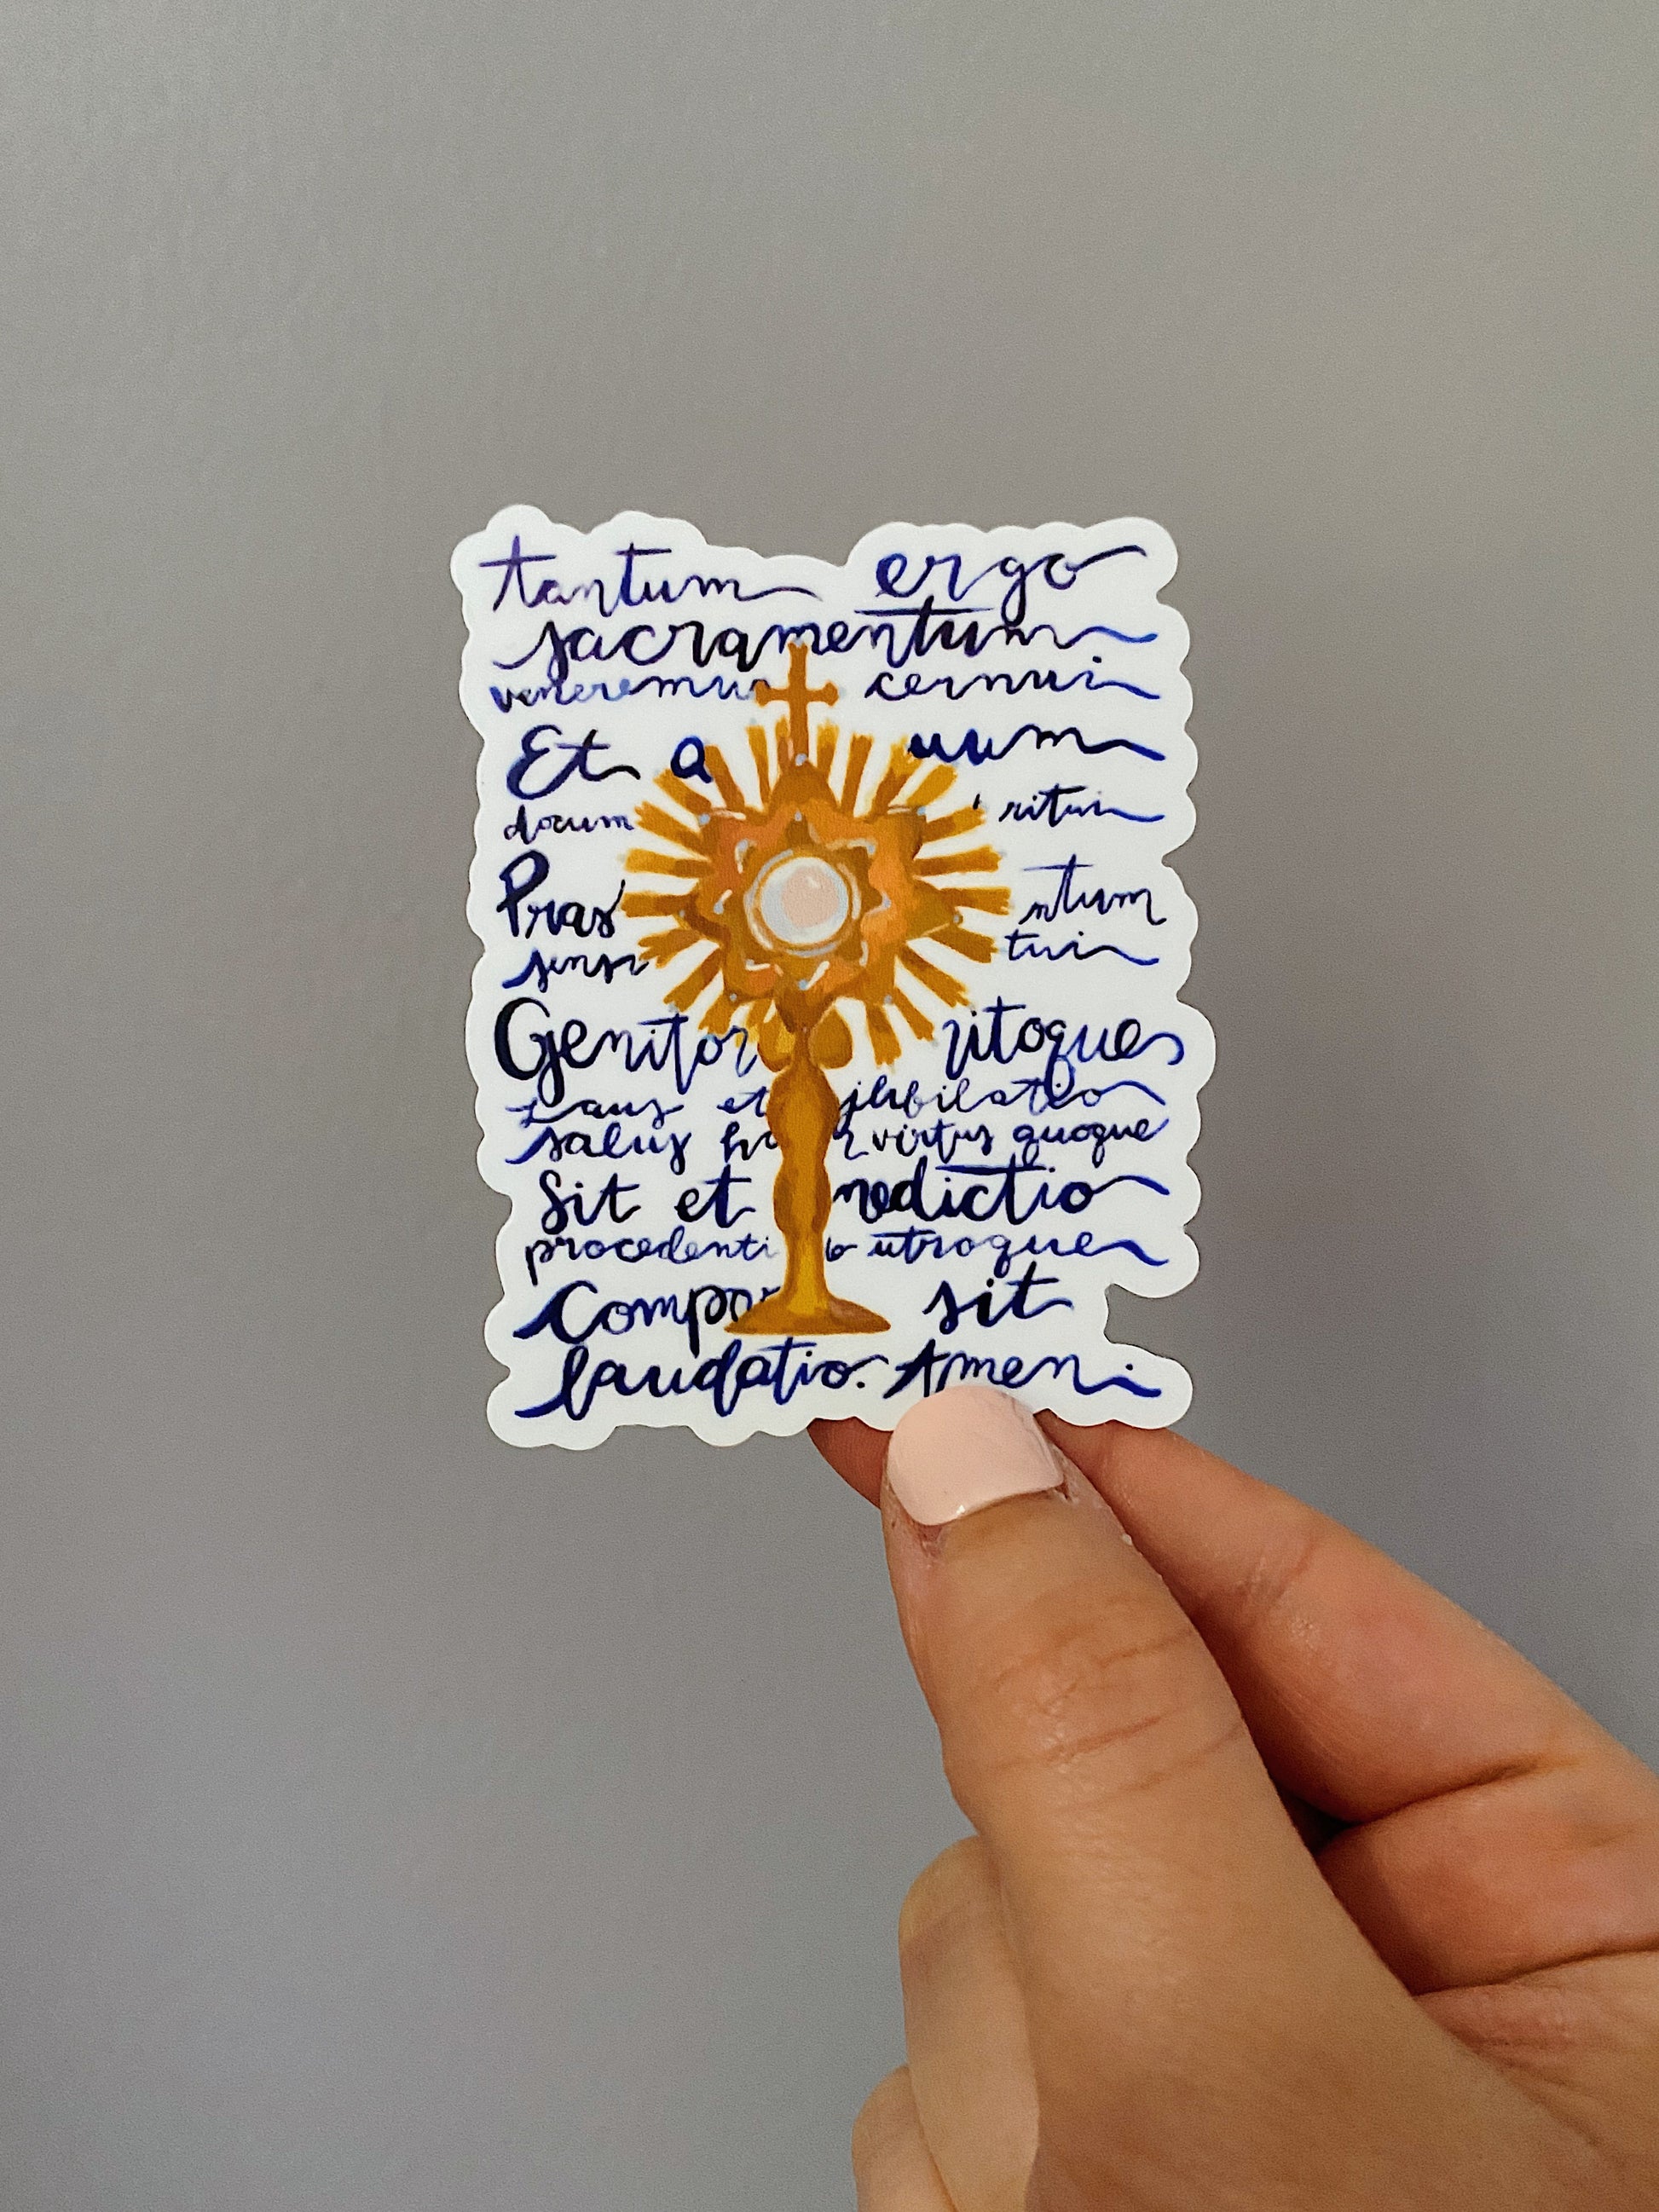 tantum ergo
sacramentum
veneremus cernui
Et a uum
docum ritui
Pras ntum
sensu tui
Genitor nitoque
Laus et jubilatio
salus ho r virtus quoque
Sit et nedictio
procedenti b utroque
Compar sit
laudatio. Amen.